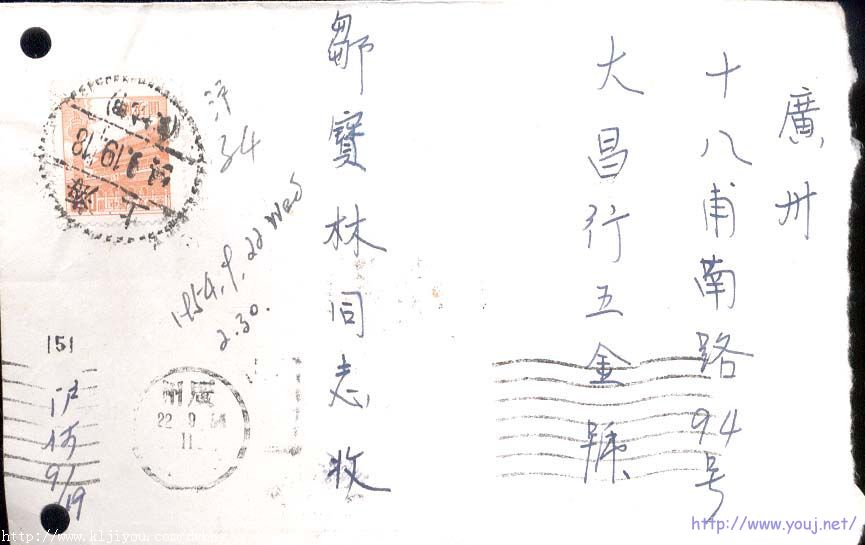 廣州
十八甫南路94号
大昌行五金號
鄒寶林同志收
34
1954.9.22 Wed
2.30.
上海
54.9.19.18
廣州
22 9 54
11
151
沪
9/19
http://www.youj.net/